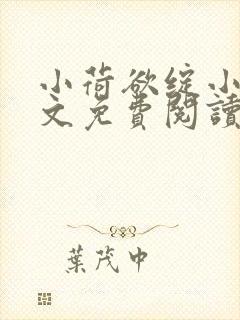 小荷欲綻小
文免費閱讀
葉茂中